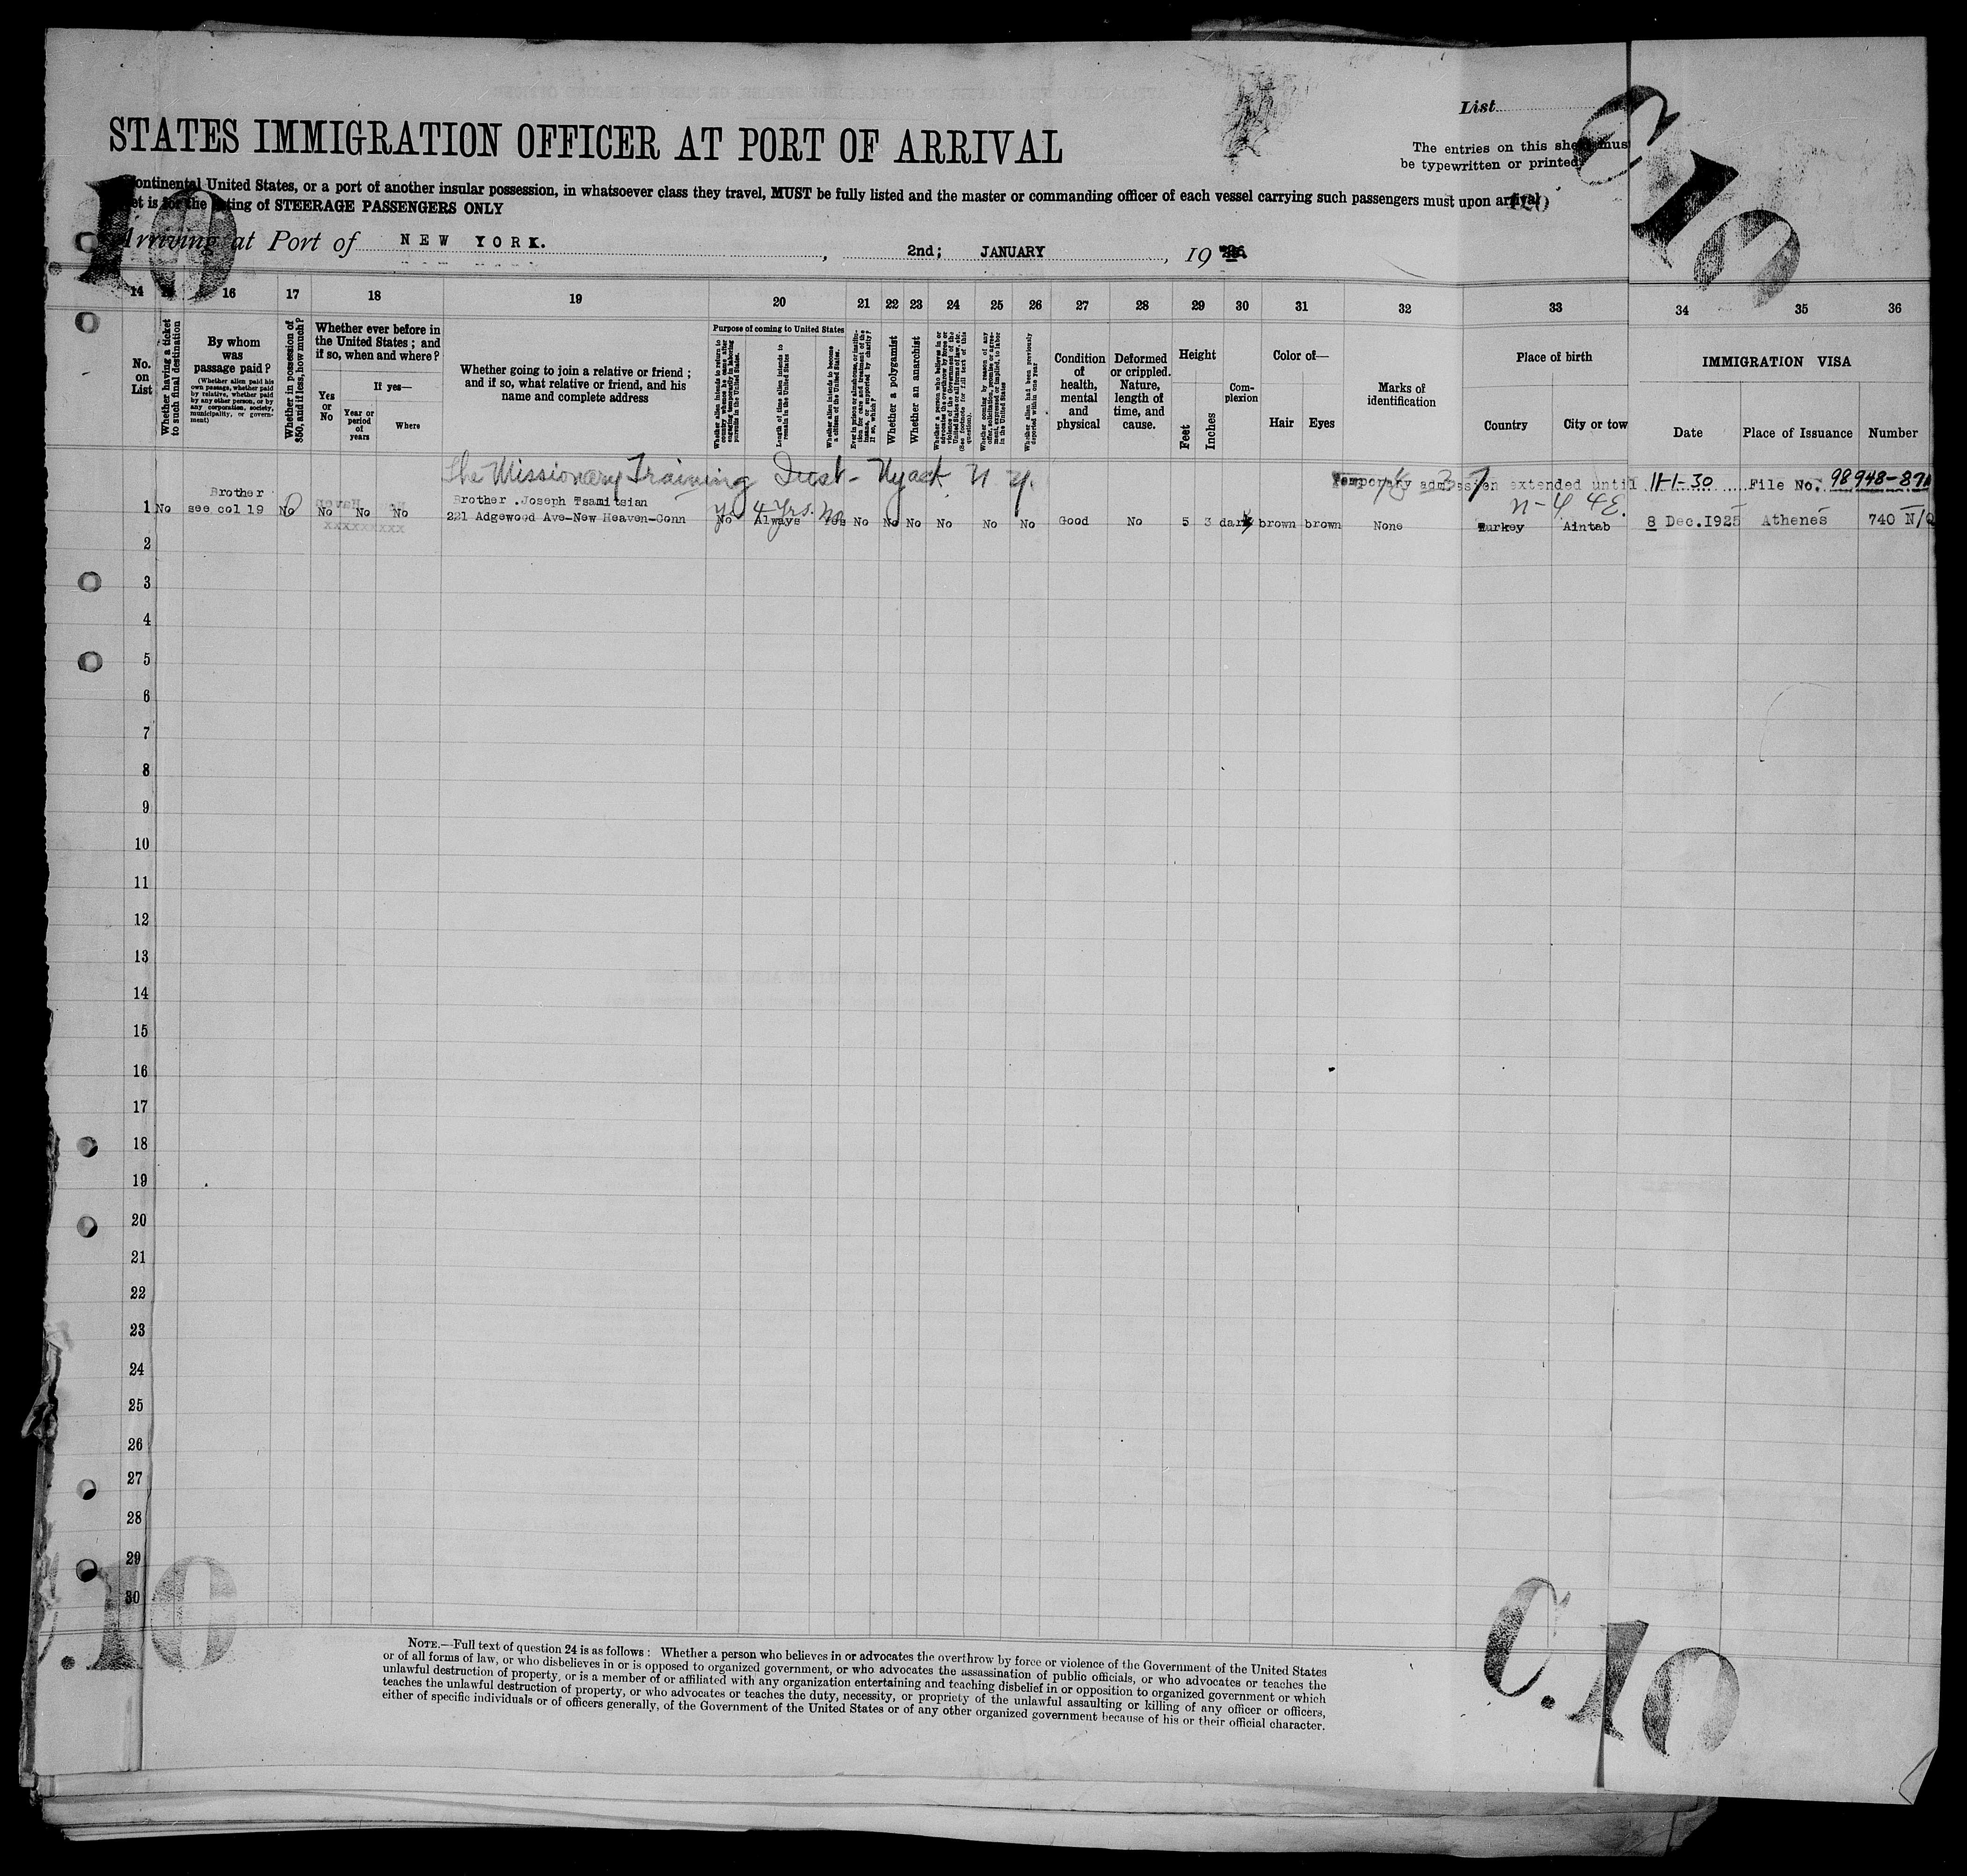 List
STATES IMMIGRATION OFFICER AT PORT OF ARRIVAL
The entries on this sheet must
be typewritten or printed.
C10
10
ontinental United States, or a port of another insular possession, in whatsoever class they travel, MUST be fully listed and the master or commanding officer of each vessel carrying such passengers must upon arrival
et is for the listing of STEERAGE PASSENGERS ONLY
120
Arriving at Port of NEW YORK. , 2nd; JANUARY , 19
14 15 16 17 18 19 20 21 22 23 24 25 26 27 28 29 30 31 32 33 34 35 36
No. on List
Whether having a ticket to such final destination
By whom was passage paid?
(Whether alien paid his own passage, whether paid by relative, whether paid by any other person, or by any corporation, society, municipality, or government)
Whether in possession of $50, and if less, how much?
Whether ever before in the United States; and if so, when and where?
Yes or No
If yes—
Year or period of years
Where
Whether going to join a relative or friend; and if so, what relative or friend, and his name and complete address
Purpose of coming to United States
Whether alien intends to return to country whence he came after engaging temporarily in laboring pursuits in the United States.
Length of time alien intends to remain in the United States
Whether alien intends to become a citizen of the United States.
Ever in prison or almshouse, or institution for care and treatment of the insane, or supported by charity? If so, which?
Whether a polygamist
Whether an anarchist
Whether a person who believes in or advocates the overthrow by force or violence of the Government of the United States or all forms of law, etc. (See footnote for full text of this question).
Whether coming by reason of any offer, solicitation, promise or agreement, expressed or implied, to labor in the United States
Whether alien had been previously deported within one year
Condition of health, mental and physical
Deformed or crippled. Nature, length of time, and cause.
Height
Feet
Inches
Complexion
Color of—
Hair Eyes
Marks of identification
Place of birth
Country City or tow
IMMIGRATION VISA
Date Place of Issuance Number
The Missionary Training Inst- Nyack N Y.
Temporary admission extended until 11-1-30 File No. 98948-891
n-4 4E.
Brother Brother .Joseph Tsamitsian
yes 4 Yrs. No
1 No see col 19 No No No No 221 Adgewood Ave-New Heaven-Conn No Always Yes No No No No No No Good No 5 3 dark brown brown None Turkey Aintab 8 Dec.1925 Athenes 740 N/Q
xxxxxxxxx
2
3
4
5
6
7
8
9
10
11
12
13
14
15
16
17
18
19
20
21
22
23
24
25
26
27
28
29
30
.10
C.10
NOTE.—Full text of question 24 is as follows: Whether a person who believes in or advocates the overthrow by force or violence of the Government of the United States
or of all forms of law, or who disbelieves in or is opposed to organized government, or who advocates the assassination of public officials, or who advocates or teaches the
unlawful destruction of property, or is a member of or affiliated with any organization entertaining and teaching disbelief in or opposition to organized government or which
teaches the unlawful destruction of property, or who advocates or teaches the duty, necessity, or propriety of the unlawful assaulting or killing of any officer or officers,
either of specific individuals or of officers generally, of the Government of the United States or of any other organized government because of his or their official character.